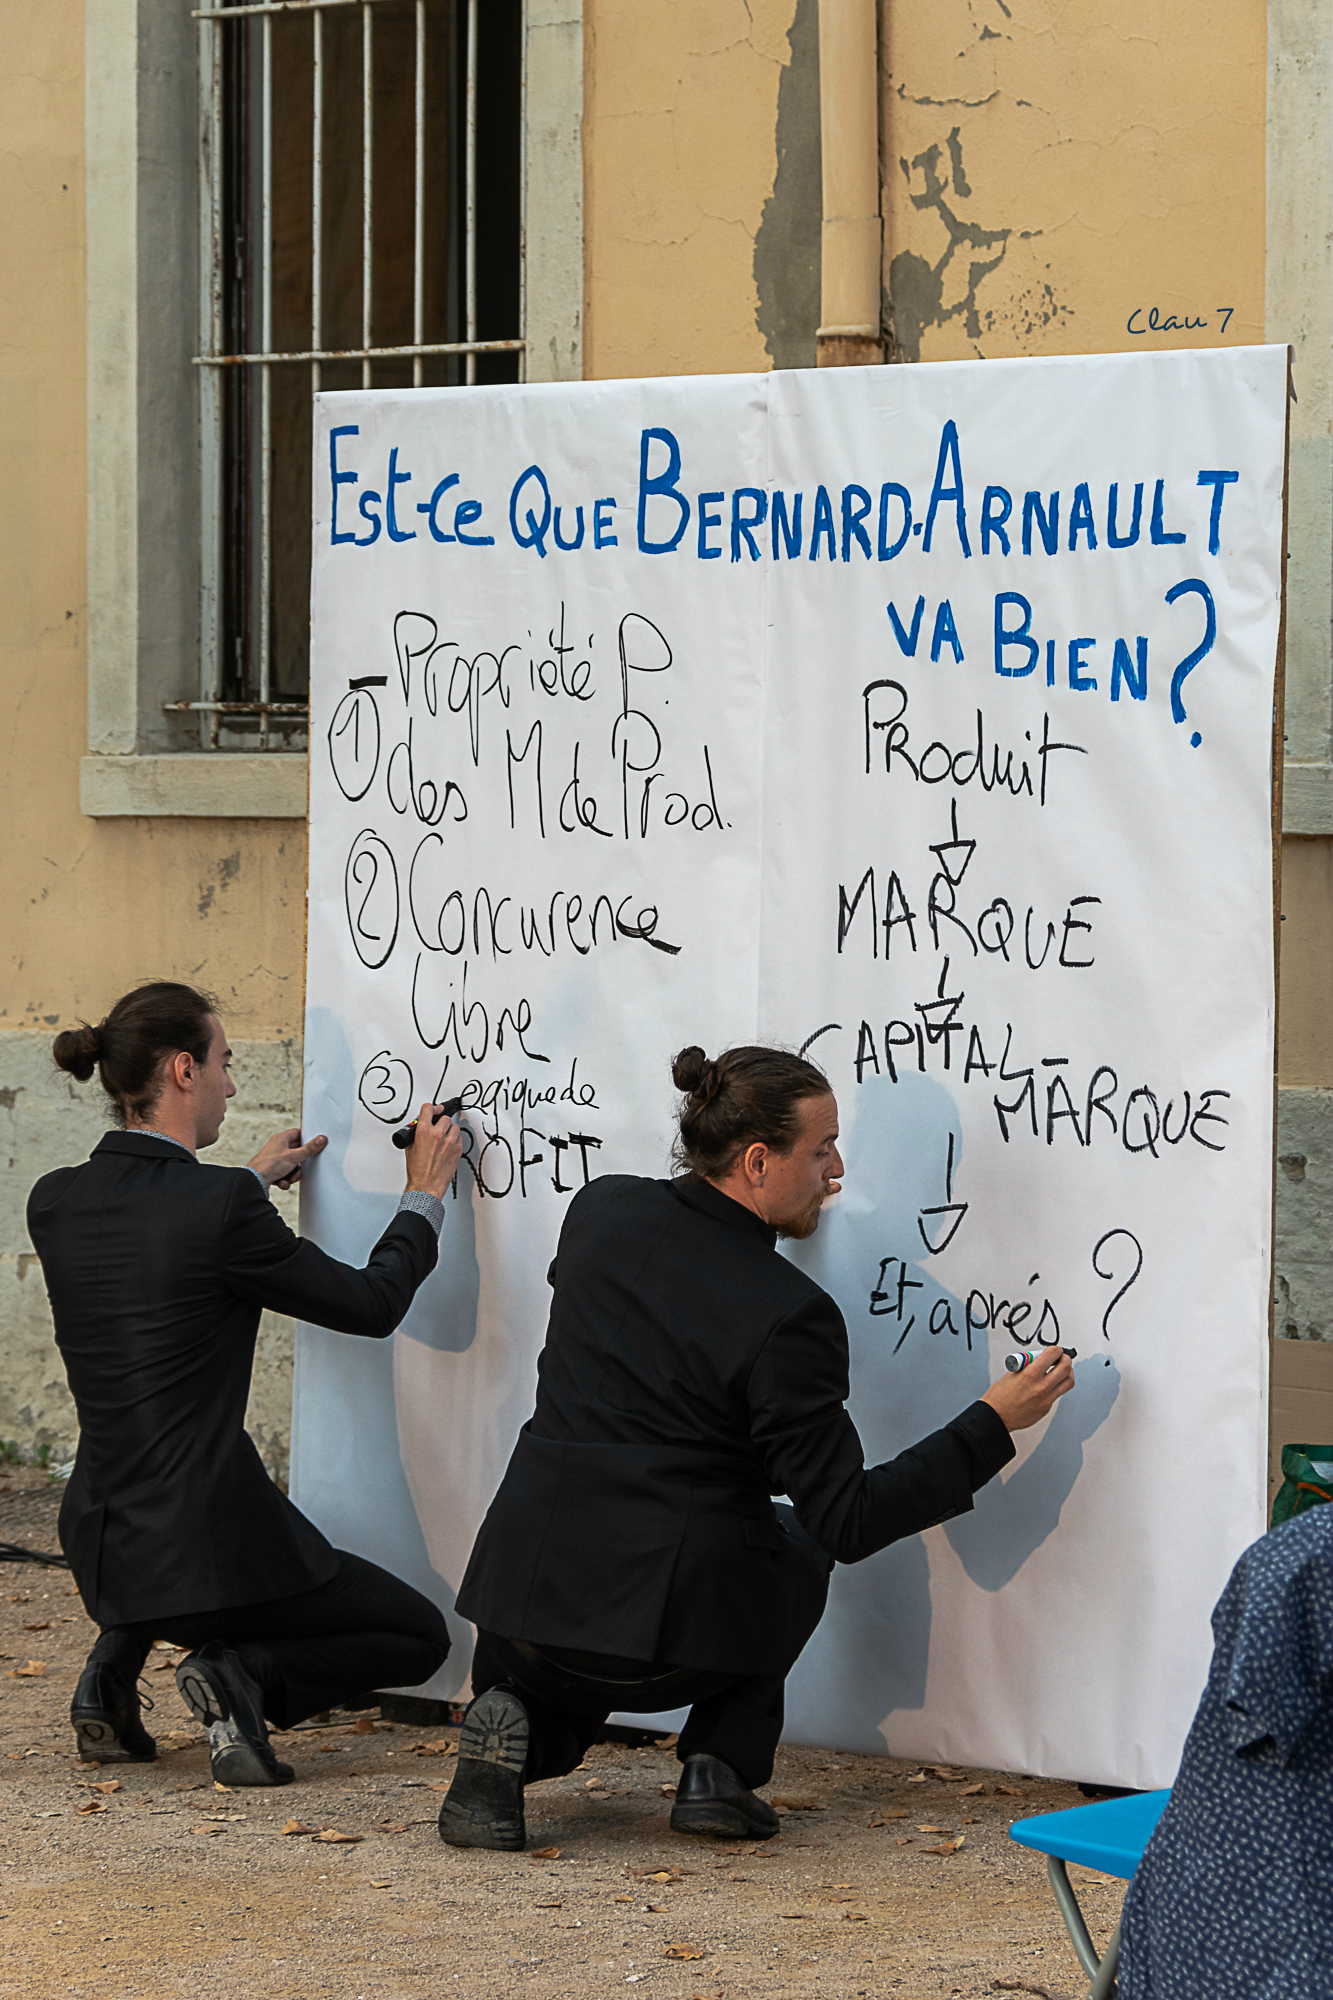 Clau 7
Est-ce Que BERNARD.ARNAULT
VA BIEN?
1 Propriété P.
des M de Prod.
2 Concurence
Libre
3 Logique de
PROFIT
Produit
MARQUE
CAPITAL-
MARQUE
Et, aprés ?